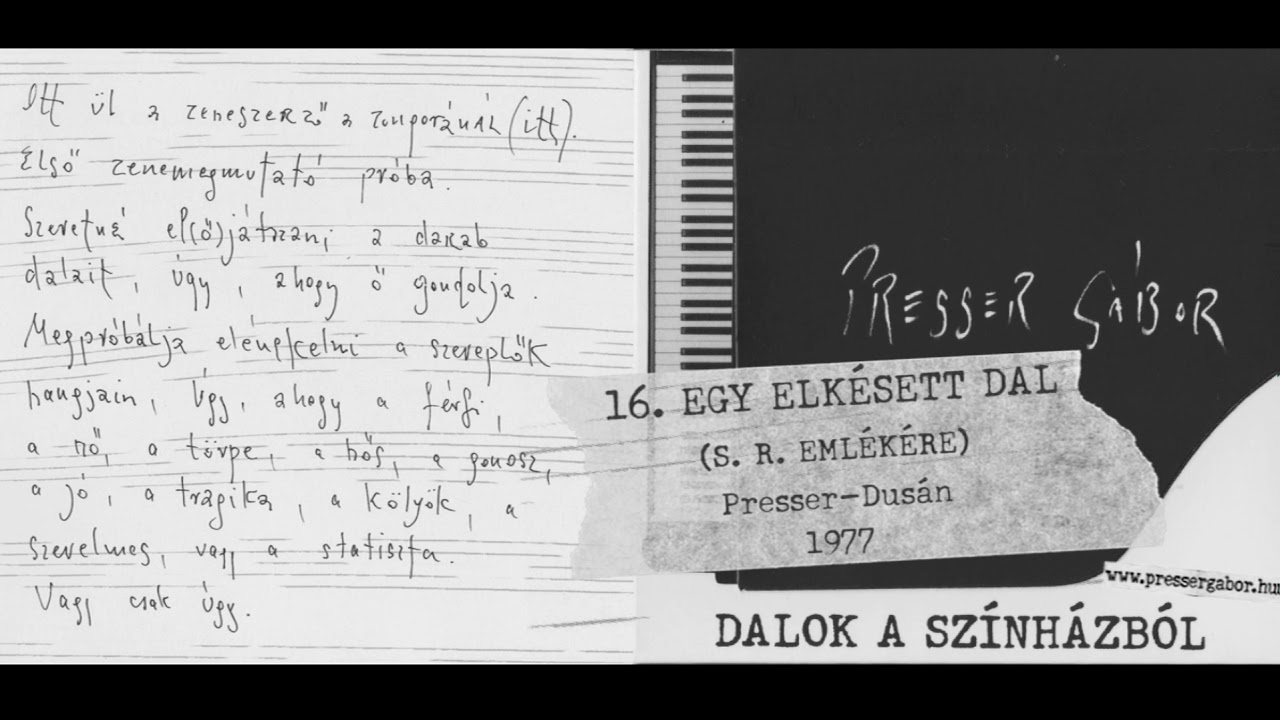 Itt ül a zeneszerző a zongoránál (itt).
Első zenemegmutató próba.
Szeretné el(ő)játszani a darab
dalait, úgy, ahogy ő gondolja.
Megpróbálja elénekelni a szereplők
hangjain, úgy, ahogy a férfi,
a nő, a törpe, a hős, a gonosz,
a jó, a tragika, a kölyök, a
szerelmes, vagy a statiszta.
Vagy csak úgy.
PRESSER GÁBOR
16. EGY ELKÉSETT DAL
(S. R. EMLÉKÉRE)
Presser-Dusán
1977
www.pressergabor.hu
DALOK A SZÍNHÁZBÓL